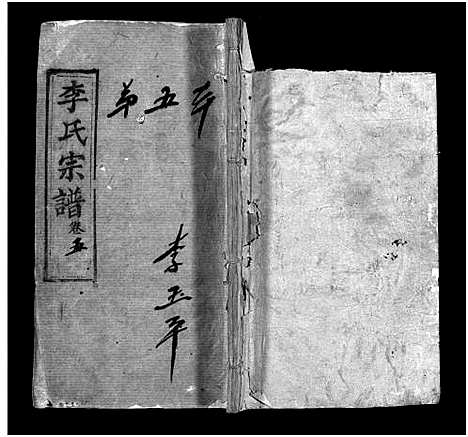 李氏宗譜 卷五
第五本
李玉平